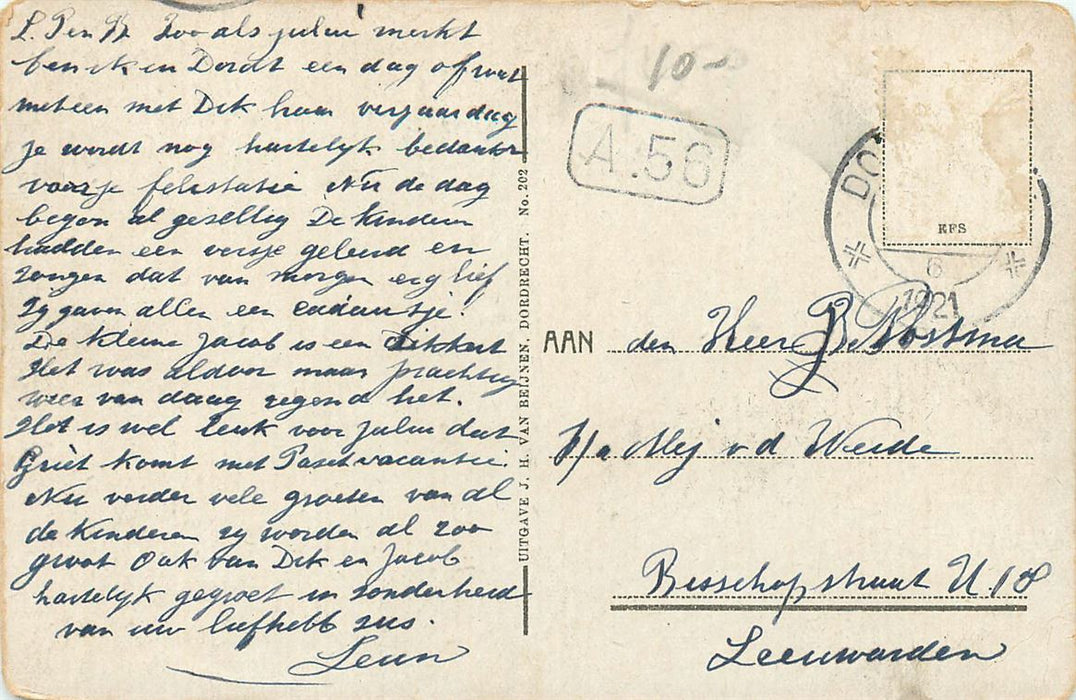 Zoo als jului merkt
ben ik in Dordt een dag of wat
meteen met Dik haar verjaardag
je wordt nog hartelyk bedankt
voor je felistatie Nu de dag
begon al gesellig De kinderen
hadden een versje geleerd en
zongen dat van morgen erg lief
Zy gaven allen een cadautsje!
De kleine Jacob is een dikkert
Het was aldoor maar prachtig
weer van daag regend het.
Het is wel leuk voor jului dat
Griet komt met Paschvacantie.
Nu verder vele groeten van al
de kinderen zy worden al zoo
groot Ook van Dik en Jacob
hartelyk gegroet in zonderheid
van uw liefhebb zus.
Leun
UITGAVE J. H. VAN BEIJNEN, DORDRECHT. No. 202
10-
A.56
DO
6
1921
EFS
AAN den Heer B. Postma
p/a Mej v d Weide
Bisschopstraat U.18
Leeuwarden